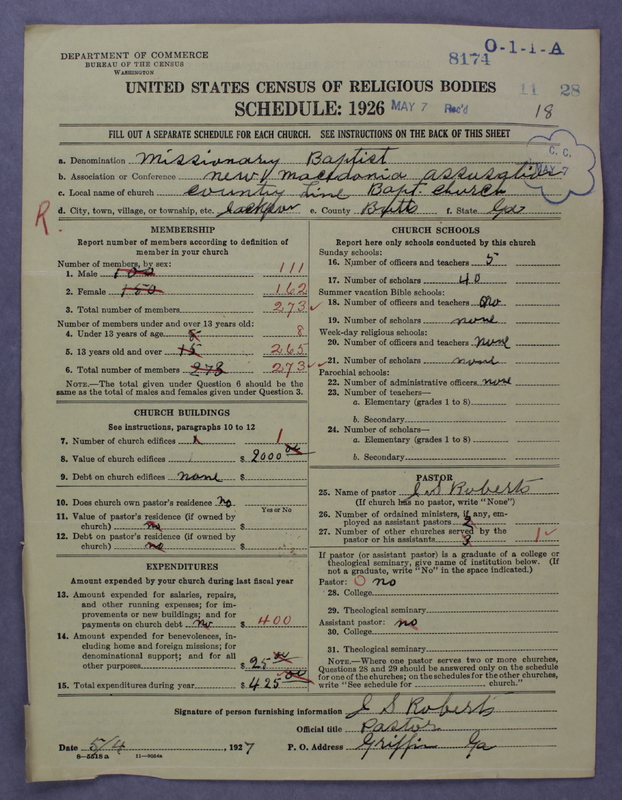 DEPARTMENT OF COMMERCE
BUREAU OF THE CENSUS
WASHINGTON
8174
O-1-1-A
UNITED STATES CENSUS OF RELIGIOUS BODIES
11 28
SCHEDULE: 1926 MAY 7 Rec'd
18
FILL OUT A SEPARATE SCHEDULE FOR EACH CHURCH. SEE INSTRUCTIONS ON THE BACK OF THIS SHEET
a. Denomination Missionary Baptist
b. Association or Conference new macedonia
c. Local name of church country Line Bapt. church
C. C.
MAY 7
R.
d. City, town, village, or township, etc. e. County Butts f. State Ga
MEMBERSHIP
Report number of members according to definition of member in your church
Number of members, by sex:
1. Male 100 111
2. Female 150 162
3. Total number of members 273
Number of members under and over 13 years old:
4. Under 13 years of age 8 8
5. 13 years old and over 15 265
6. Total number of members 273 273
NOTE.—The total given under Question 6 should be the
same as the total of males and females given under Question 3.
CHURCH BUILDINGS
See instructions, paragraphs 10 to 12
7. Number of church edifices 1
8. Value of church edifices $ 2000 00
9. Debt on church edifices none $
10. Does church own pastor's residence? no
Yes or No
11. Value of pastor's residence (if owned by
church) no $
12. Debt on pastor's residence (if owned by
church) no $
EXPENDITURES
Amount expended by your church during last fiscal year
13. Amount expended for salaries, repairs,
and other running expenses; for im-
provements or new buildings; and for
payments on church debt no $ 400
14. Amount expended for benevolences, in-
cluding home and foreign missions; for
denominational support; and for all
other purposes $ 25 00
15. Total expenditures during year $ 425 00
CHURCH SCHOOLS
Report here only schools conducted by this church
Sunday schools:
16. Number of officers and teachers 5
17. Number of scholars 40
Summer vacation Bible schools:
18. Number of officers and teachers no
19. Number of scholars none
Week-day religious schools:
20. Number of officers and teachers none
21. Number of scholars none
Parochial schools:
22. Number of administrative officers none
23. Number of teachers—
a. Elementary (grades 1 to 8)
b. Secondary
24. Number of scholars—
a. Elementary (grades 1 to 8)
b. Secondary $
PASTOR
25. Name of pastor J S Roberts
(If church has no pastor, write "None")
26. Number of ordained ministers, if any, em-
ployed as assistant pastors 2
27. Number of other churches served by the
pastor or his assistants 3 1
If pastor (or assistant pastor) is a graduate of a college or
theological seminary, give name of institution below. (If
not a graduate, write "No" in the space indicated.)
Pastor: O no
28. College
29. Theological seminary
Assistant pastor: no
30. College
31. Theological seminary
NOTE.—Where one pastor serves two or more churches,
Questions 28 and 29 should be answered only on the schedule
for one of the churches; on the schedules for the other churches,
write "See schedule for church."
Signature of person furnishing information J S Roberts
Official title Pastor
Date 5/4, 1927 P. O. Address Griffin Ga
8-5518a 11-9064a